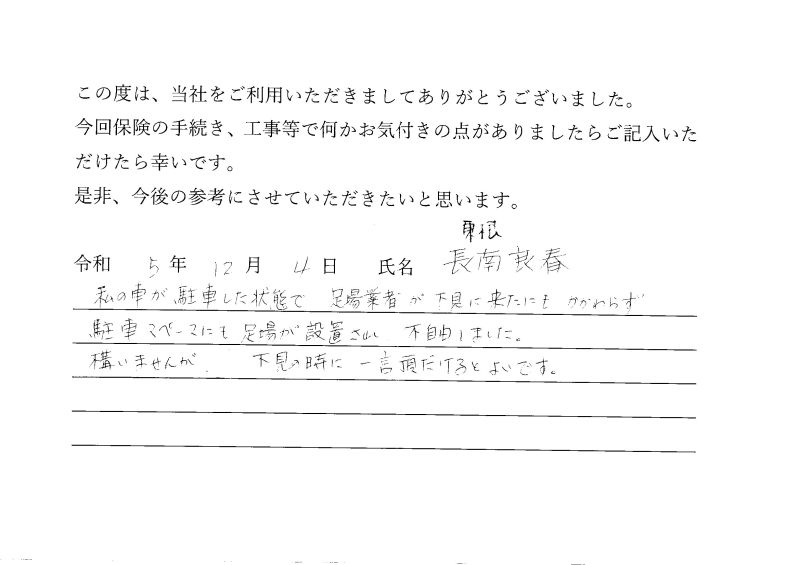 この度は、当社をご利用いただきましてありがとうございました。
今回保険の手続き、工事等で何かお気付きの点がありましたらご記入いた
だけたら幸いです。
是非、今後の参考にさせていただきたいと思います。
東根
令和 5年 12月 4日 氏名 長南良春
私の車が駐車した状態で 足場業者が下見に来たにもかかわらず
駐車スペースにも足場が設置され 不自由しました。
構いませんが、 下見の時に一言頂だけるとよいです。